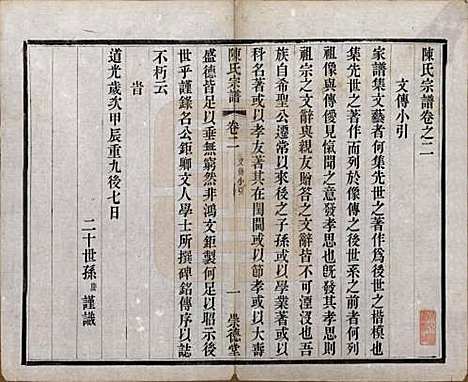 陳氏宗譜卷之二
文傳小引
家譜集文藝者何集先世之著作為後世之楷模也
集先世之著作而列於像傳之後世系之前者何列
祖像與傳優見愾聞之意發孝思也既發其孝思則
祖宗之文辭與親友贈答之文辭皆不可湮沒也吾
族自希聖公遷常以來後之子孫或以學業著或以
科名著或以孝友著其在閨闈或以節孝或以大壽
陳氏宗譜 卷二 文傳小引 一 崇德堂
盛德皆足以垂無窮然非鴻文鉅製何足以昭示後
世乎謹錄名公鉅卿文人學士所撰碑銘傳序以誌
不朽云
旹
道光歲次甲辰重九後七日
二十世孫 謹識